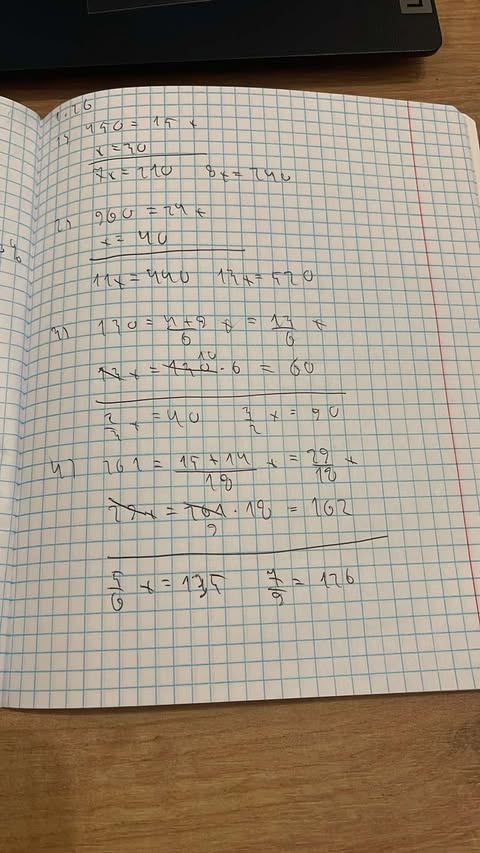 1.26
1) 450 = 15 x
x = 30
7x = 210 8x = 240
2) 960 = 24 x
x = 40
11x = 440 13x = 520
3) 130 = \frac{4+9}{6} x = \frac{13}{6} x
13 x = 130 10 · 6 = 60
\frac{2}{3} x = 40 \frac{3}{2} x = 90
4) 261 = \frac{15+14}{18} x = \frac{29}{18} x
29x = 261 9 · 18 = 162
\frac{5}{6} x = 135 \frac{7}{9} = 126